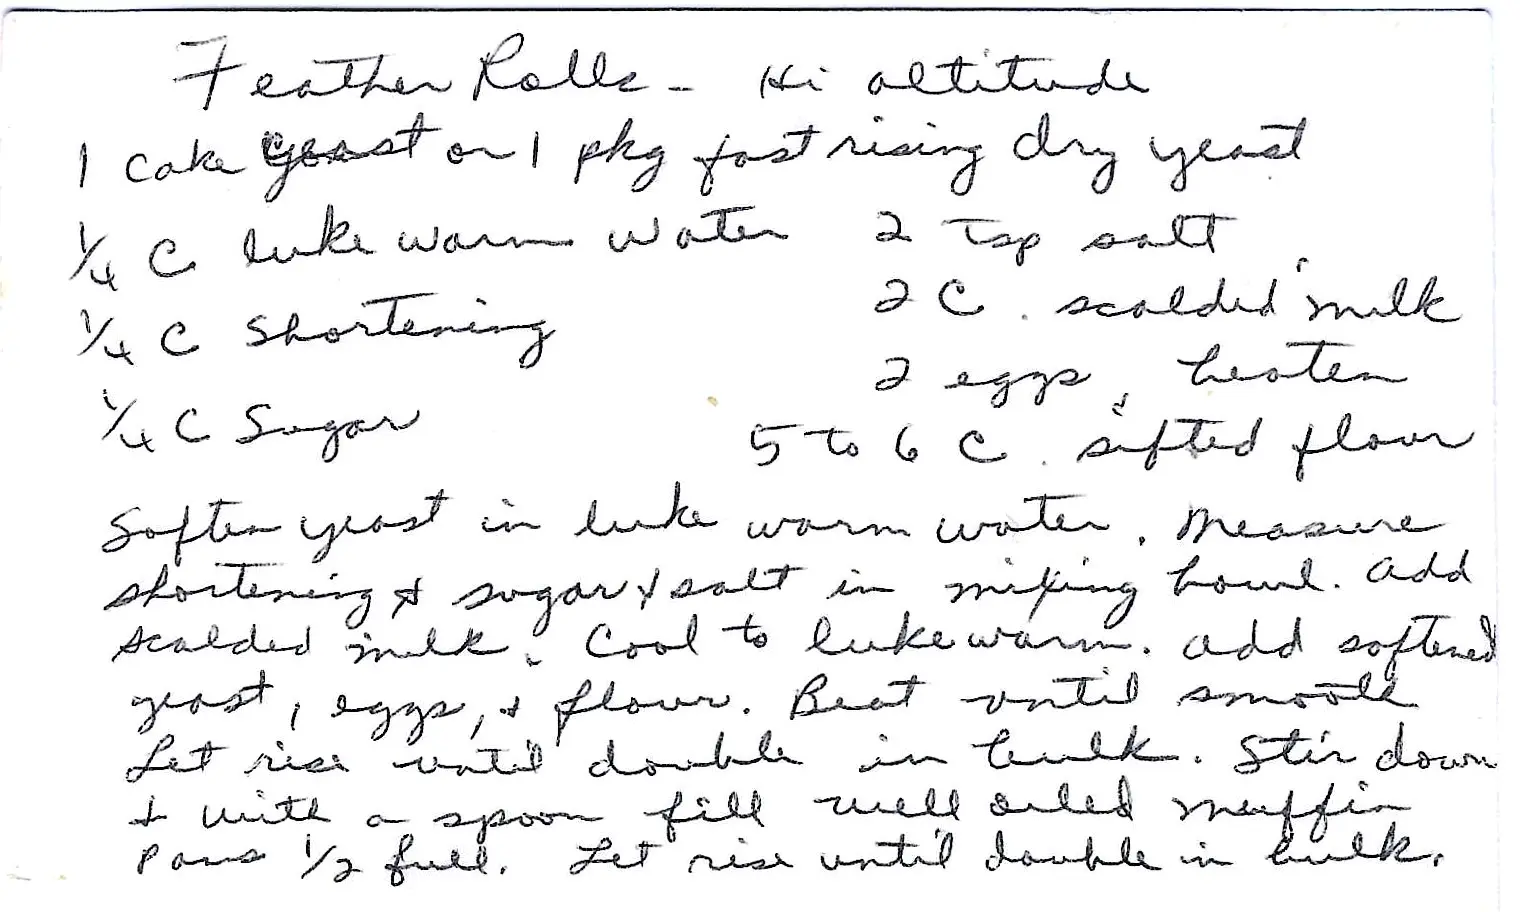 Feather Rolls - Hi altitude
1 cake yeast or 1 pkg fast rising dry yeast
1/4 C luke warm water 2 Tsp salt
1/4 C Shortening 2 C. scalded milk
1/4 C Sugar 2 eggs, beaten
5 to 6 C. sifted flour
Soften yeast in luke warm water. Measure
shortening & sugar & salt in mixing bowl. Add
scalded milk. Cool to lukewarm. Add softened
yeast, eggs, & flour. Beat until smooth
Let rise until double in bulk. Stir down
& with a spoon fill well oiled muffin
pans 1/2 full. Let rise until double in bulk.